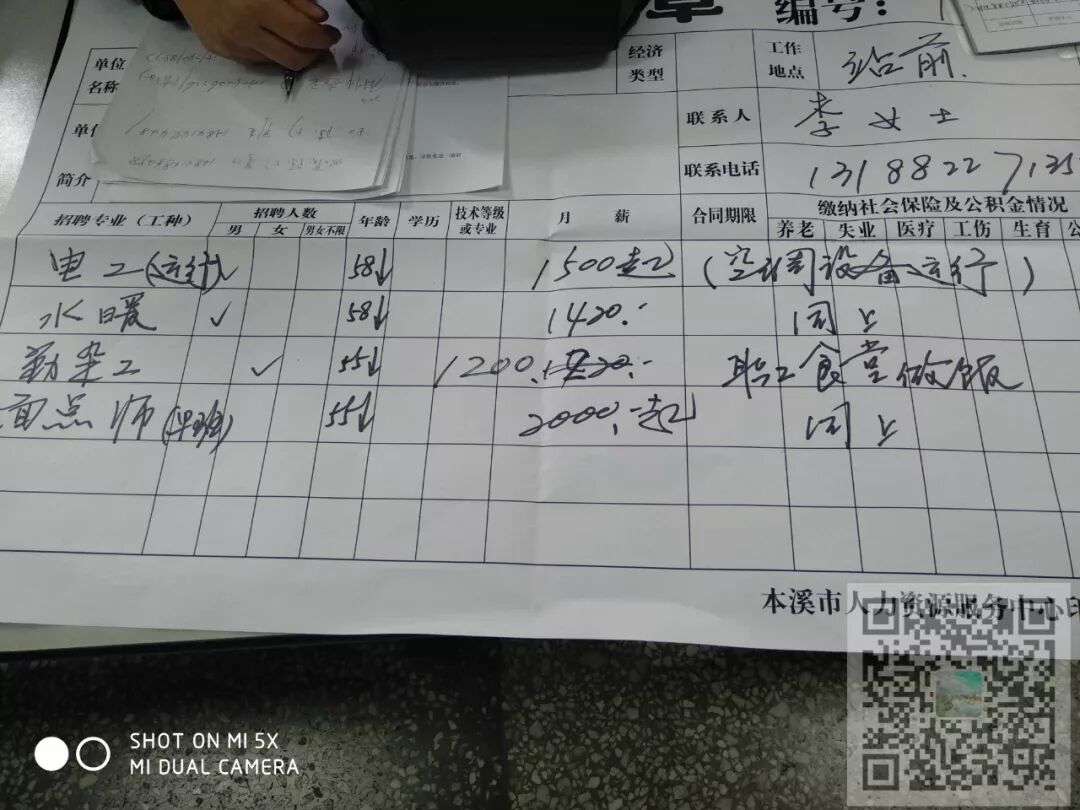 章 编号：
单位名称
经济类型
工作地点 站前.
联系人 李女士
单位简介
联系电话 13188227135
招聘专业（工种） 招聘人数 年龄 学历 技术等级或专业 月薪 合同期限 缴纳社会保险及公积金情况
男 女 男女不限 养老 失业 医疗 工伤 生育 公
电工(运行) ✓ 58↓ 1500起 (空调设备运行)
水暖 ✓ 58↓ 1420.- 同上
勤杂工 ✓ 55↓ 1200.- 职工食堂做饭
面点师(早班) 55↓ 2000.-起 同上
本溪市人力资源服务中心印
SHOT ON MI 5X
MI DUAL CAMERA